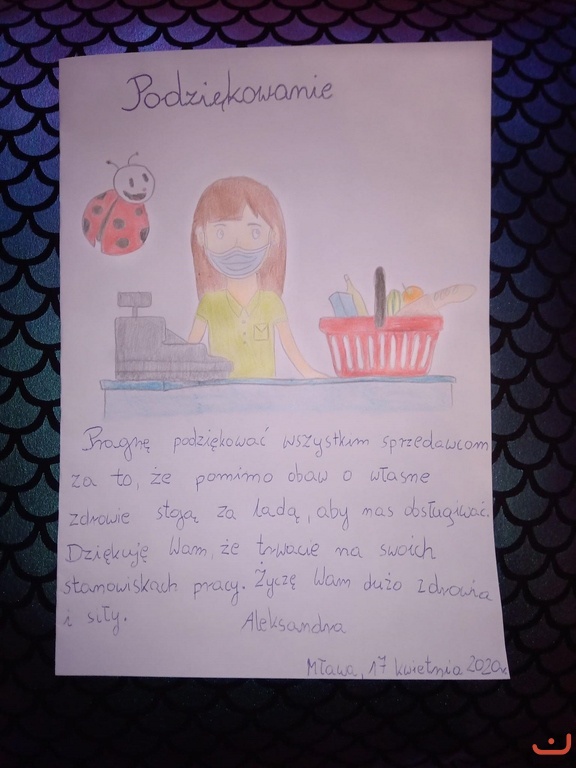 Podziękowanie
Pragnę podziękować wszystkim sprzedawcom
za to, że pomimo obaw o własne
zdrowie stoją za ladą, aby nas obsługiwać.
Dziękuję Wam, że trwacie na swoich
stanowiskach pracy. Życzę Wam dużo zdrowia
i siły.
Aleksandra
Mława, 17 kwietnia 2020r.